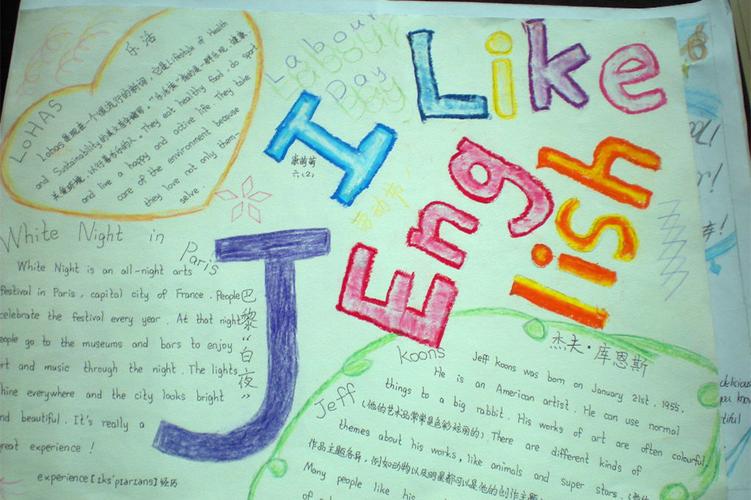 Labour
Day
I Like
English
劳动节!
康萌萌
六(2)
乐活
LOHAS
Lohas 是现在一个很流行的新词,它是Lifestyle of Health
and Sustainability的
They eat healthy food, do sport
and live a happy and active life. They take
care of the environment because
they love not only them-
selve.
White Night in Paris
巴黎“白夜”
White Night is an all-night arts
festival in Paris, capital city of France. People
celebrate the festival every year. At that night
people go to the museums and bars to enjoy
art and music through the night. The lights
shine everywhere and the city looks bright
and beautiful. It's really a
great experience!
experience [iks'piəriəns] 经历
J
Jeff Koons
杰夫·库恩斯
Jeff Koons was born on January 21st, 1955.
He is an American artist. He can use normal
things to a big rabbit. His works of art are often colourful.
(他的艺术品常常是色彩炫丽的) There are different kinds of
themes about his works, like animals and super stars.
作品主题各异,例如动物以及明星都可以是他的创作主题
Many people like his
delicious
you know
tiful